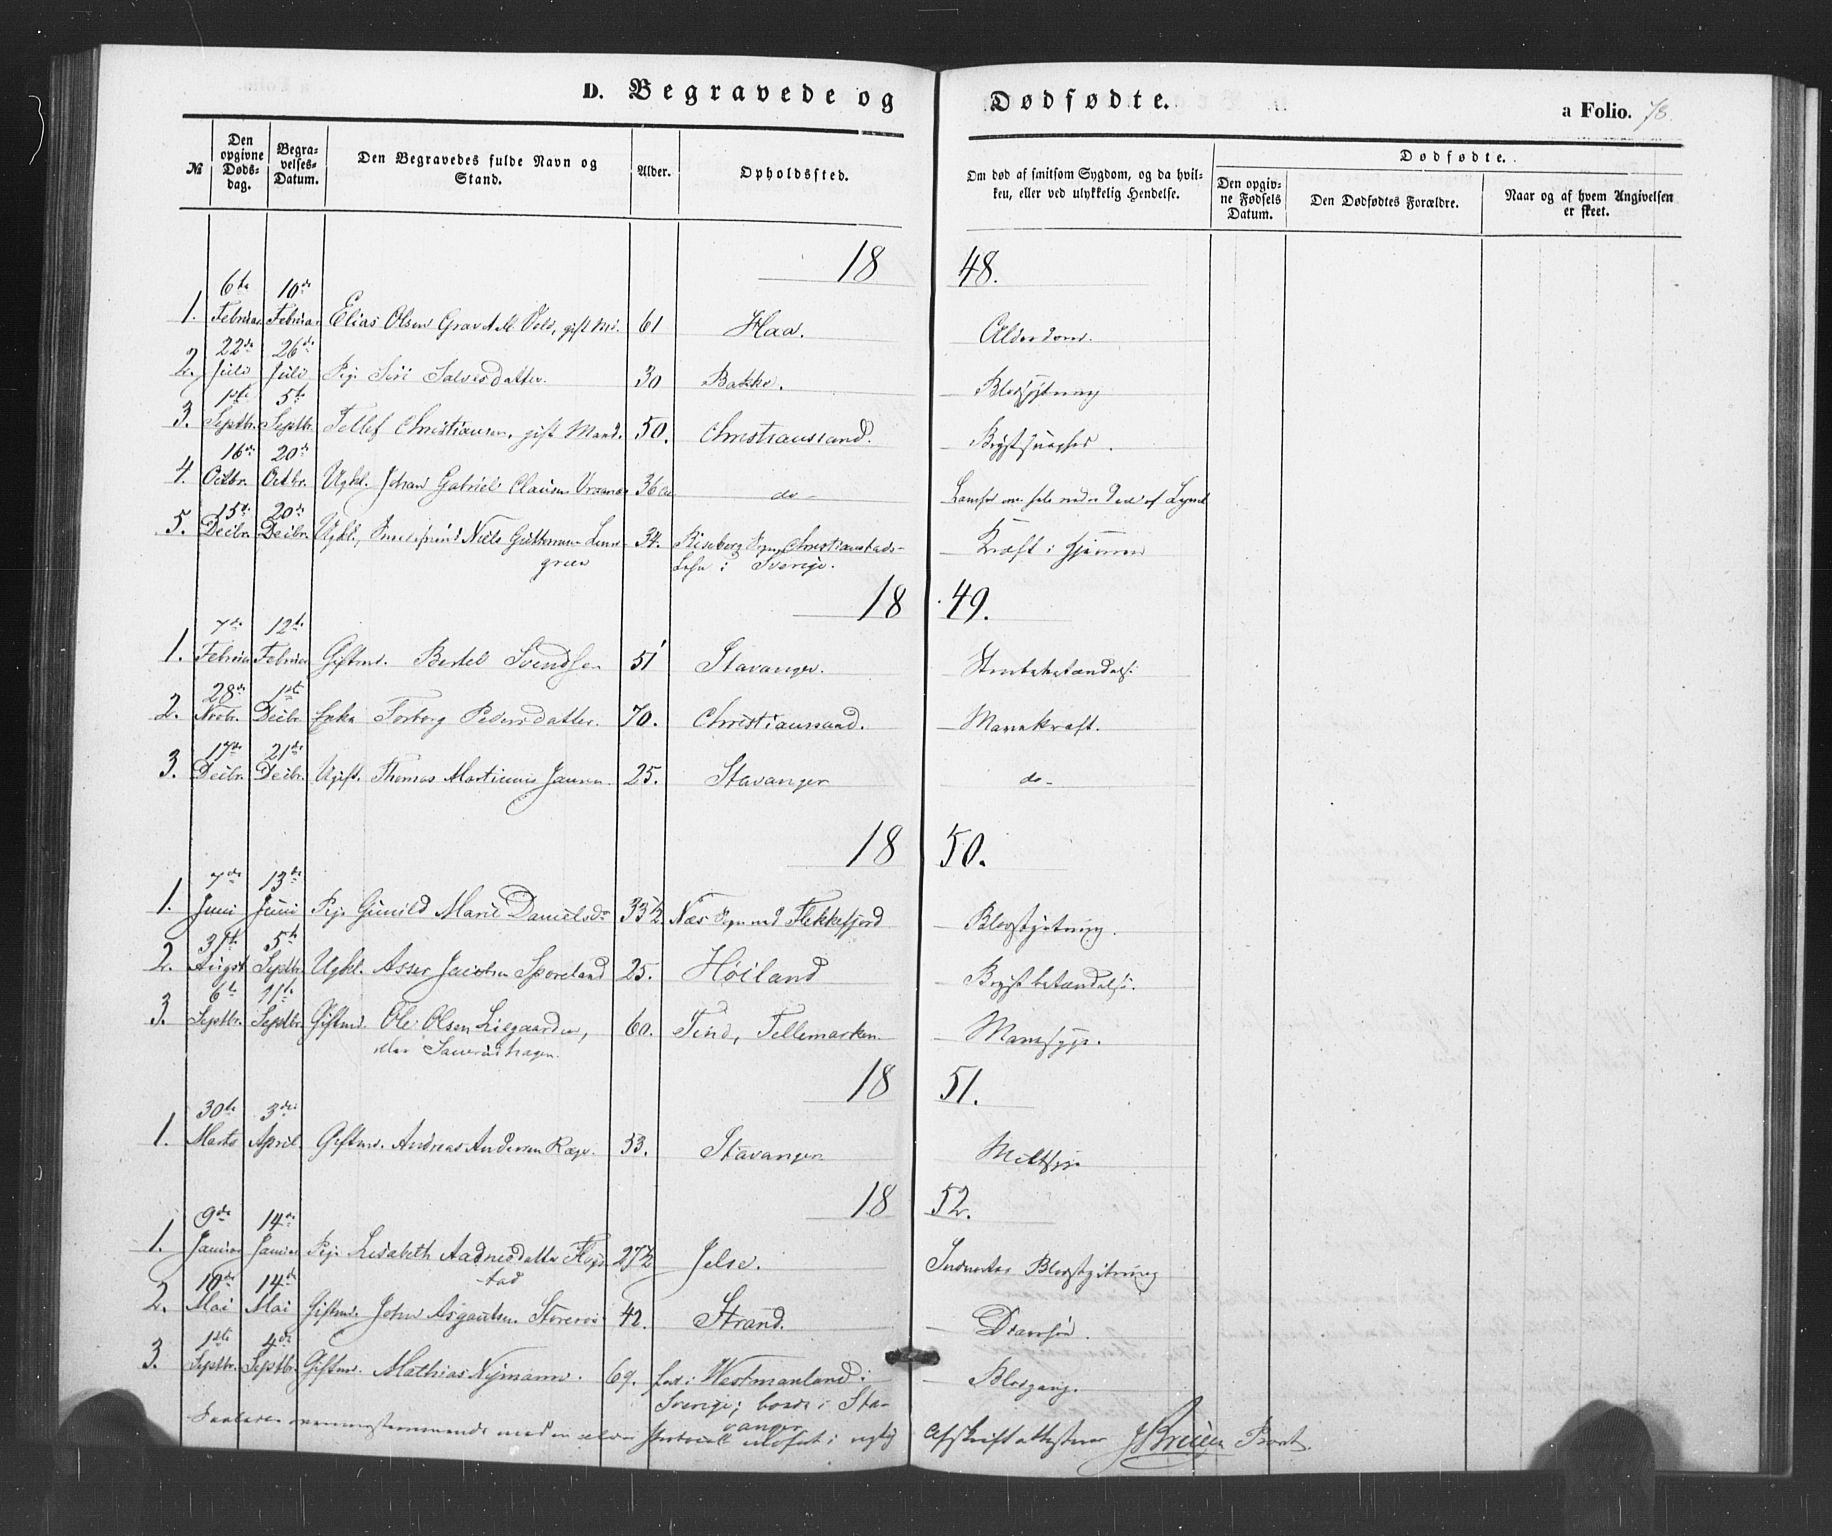 D. Begravede og Dødfødte. a Folio. 78.
№ Den opgivne Døds-dag. Begra-velses-Datum. Den Begravedes fulde Navn og Stand. Alder. Opholdssted. Om død af smitsom Sygdom, og da hvil-ken, eller ved ulykkelig Hendelse. Dødfødte. Den opgiv-ne Fødsels Datum. Den Dødfødtes Forældre. Naar og af hvem Angivelsen er skeet.
1848.
1. 6te Februar 10de Februar Elias Olsen gift Md. 61 Haa. Alderdom.
2. 22de Juli 26de Juli Pige Siri Salvesdatter. 30 Bakke. Blodspytning
3. 1ste Septbr. 5te Septbr. Tellef Christiansen, gift Mand. 50. Christianssand. Brystsvaghed.
4. 16de Octbr. 20de Octbr. Ugkl. Johan Gabriel Clausen 36 do-
5. 15de Decbr. 20de Decbr. Ugkl., Niels Guttman Lenn-
green 34. Christianstads-
Lehn i Sverige. Kræft i Hjernen
1849.
1. 7de Februar 12te Februar Giftmd. Bertel Svendsen 51 Stavanger. Strubebetændelse
2. 28de Novbr. 1ste Decbr. Enke Torborg Pedersdatter. 70. Christianssand. Mavekræft.
3. 17de Decbr. 21de Decbr. Ugift. Thomas Martinius Jansen 25. Stavanger do-
1850.
1. 7de Juni 13de Juni Pige Gunild Marie Danielsdr 33½ Næs Sogn ved Flekkefjord Blodspytning.
2. 31te August 5te Septbr. Ugkl. Asser Jacobsen Sporeland 25. Høiland Brystbetændelse.
3. 6te Septbr. 11te Septbr. Giftmd. Ole Olsen Liegaarden,
eller 60. Tind, Tellemarken Mavesyge.
1851.
1. 30te Marts 3die April Giftmd. Andreas Andersen Rage. 53. Stavanger Miltsyge
1852.
1. 9de Januar 14de Januar Pige Lisabeth Aadnesdatter
-stad 27½ Jelse. Blodspytning
2. 10de Mai 14de Mai Giftmd. John Asgautsen 42. Strand.
3. 1ste Septbr. 4de Septbr. Giftmd. Mathias Nymann. 69. fød i Westmanland i
Sverige; boede i Sta-
vanger Blodgang.
Saaledes overensstemmende med den Protocoll udført i rigtig Afskrift attesterer J Breien Provst.